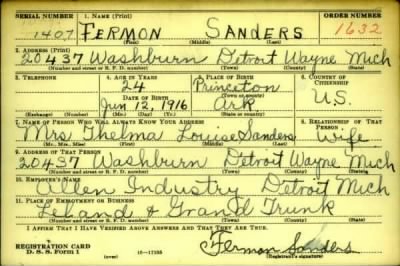 SERIAL NUMBER 1. NAME (Print) ORDER NUMBER
1407 FERMON SANDERS 1632
(First) (Middle) (Last)
2. ADDRESS (Print)
20437 Washburn Detroit Wayne Mich
(Number and street or R. F. D. number) (Town) (County) (State)
3. TELEPHONE 4. AGE IN YEARS 5. PLACE OF BIRTH 6. COUNTRY OF CITIZENSHIP
24 Princeton
DATE OF BIRTH (Town or county)
Jun 12, 1916 Ark U.S.
(Exchange) (Number) (Mo.) (Day) (Yr.) (State or country)
7. NAME OF PERSON WHO WILL ALWAYS KNOW YOUR ADDRESS 8. RELATIONSHIP OF THAT PERSON
Mrs Thelma Louise Sanders Wife
(Mr., Mrs., Miss) (First) (Middle) (Last)
9. ADDRESS OF THAT PERSON
20437 Washburn Detroit Wayne Mich
(Number and street or R. F. D. number) (Town) (County) (State)
10. EMPLOYER'S NAME
Allen Industry Detroit Mich
11. PLACE OF EMPLOYMENT OR BUSINESS
Leland & Grand Trunk
(Number and street or R. F. D. number) (Town) (County) (State)
I AFFIRM THAT I HAVE VERIFIED ABOVE ANSWERS AND THAT THEY ARE TRUE.
REGISTRATION CARD
D. S. S. Form 1 (over) Fermon Sanders
(Registrant's signature)